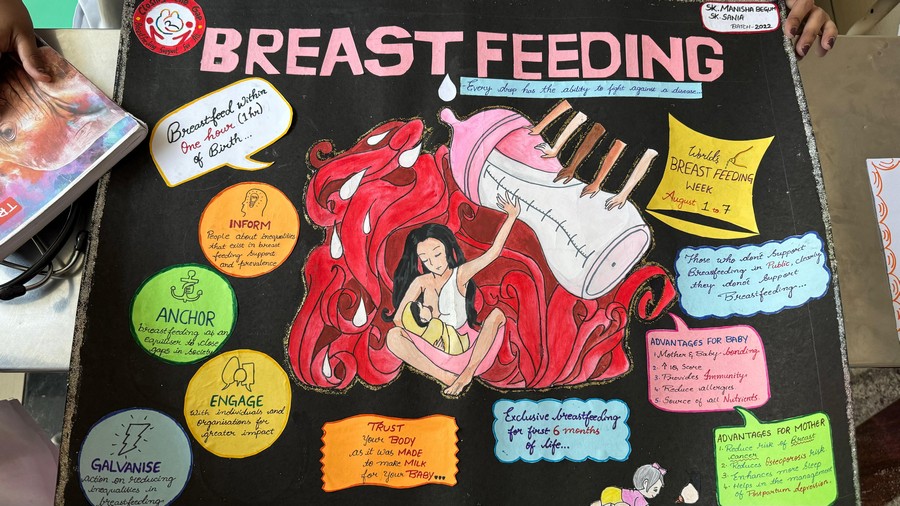 SK. MANISHA BEGUM
SK. SANIA
BATCH - 2022
BREAST FEEDING
Every drop has the ability to fight against a disease...
Breastfeed within
One hour (1 hr)
of Birth...
INFORM
People about inequalities
that exist in breast
feeding support
and prevalence
ANCHOR
breastfeeding as an
equaliser to close
gaps in society
ENGAGE
With individuals and
organisations for
greater impact
GALVANISE
action on reducing
inequalities in
breastfeeding
TRUST
Your BODY
as it was MADE
to make MILK
for your BABY
Exclusive breastfeeding
for first 6 months
of life...
Worlds
BREAST FEEDING
WEEK
August 1 to 7
Those who don't Support
Breastfeeding in Public, clearly
they donot Support
Breastfeeding...
ADVANTAGES FOR BABY
1. Mother & Baby bonding
2. ↑ IQ Score
3. Provides Immunity
4. Reduce allergies
5. Source of all Nutrients
ADVANTAGES FOR MOTHER
1. Reduce risk of Breast
cancer
2. Reduces Osteoporosis risk
3. Enhances more sleep
4. Helps in the management
of Postpartum depression